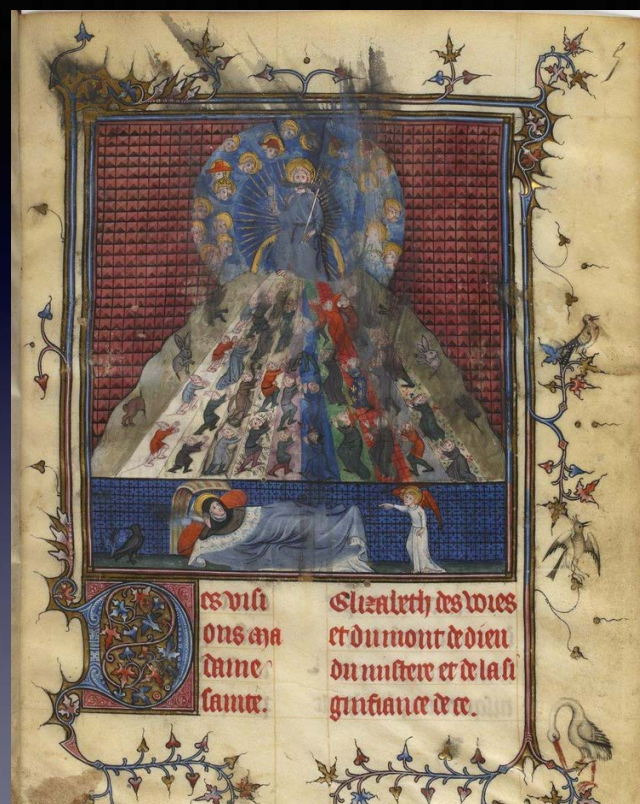 Des visi
ons ma
dame
sainte.
Elizabeth des voies
et du mont de dieu
du mistere et de la si
gnifiance de ce.